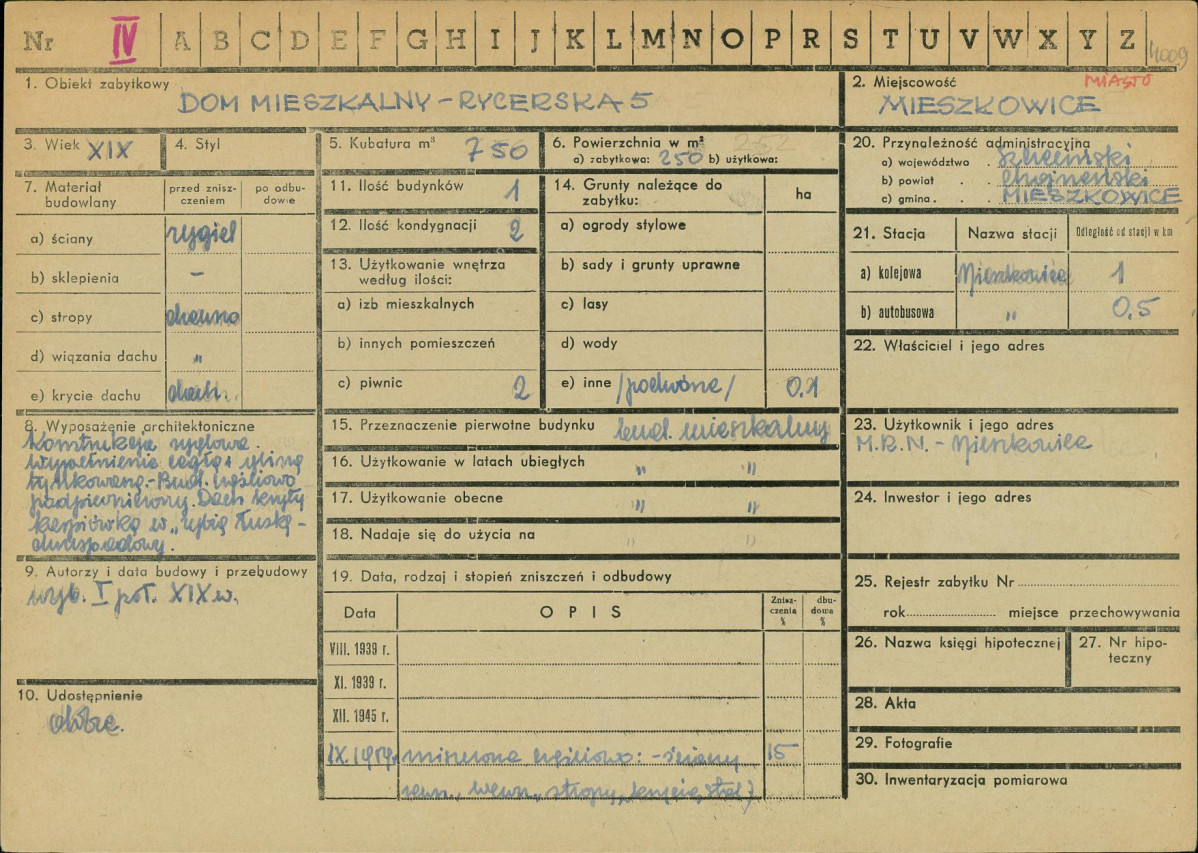 Nr IV A B C D E F G H I J K L M N O P R S T U V W X Y Z 4009
1. Obiekt zabytkowy
DOM MIESZKALNY - RYCERSKA 5
2. Miejscowość MIASTO
MIESZKOWICE
3. Wiek XIX
4. Styl
5. Kubatura m³ 750
6. Powierzchnia w m² 252
a) zabytkowa: 250 b) użytkowa:
20. Przynależność administracyjna
a) województwo . Szczeciński
b) powiat . . Chojneński
c) gmina . . MIESZKOWICE
7. Materiał budowlany
przed znisz-
czeniem
po odbu-
dowie
a) ściany rygiel
b) sklepienia -
c) stropy drewno
d) wiązania dachu "
e) krycie dachu dach.
11. Ilość budynków 1
12. Ilość kondygnacji 2
13. Użytkowanie wnętrza
według ilości:
a) izb mieszkalnych
b) innych pomieszczeń
c) piwnic 2
14. Grunty należące do
zabytku:
ha
a) ogrody stylowe
b) sady i grunty uprawne
c) lasy
d) wody
e) inne /podwórze/ 0.1
21. Stacja
Nazwa stacji
Odległość od stacji w km
a) kolejowa Mieszkowice 1
b) autobusowa " 0,5
22. Właściciel i jego adres
8. Wyposażenie architektoniczne
Konstrukcja ryglowa.
Wypełnienie cegłą i gliną
tynkowaną.-Bud. częściowo
podpiwniczony. Dach kryty
karpiówką w „rybią łuskę -
dwuspadowy.
15. Przeznaczenie pierwotne budynku bud. mieszkalny
16. Użytkowanie w latach ubiegłych " "
17. Użytkowanie obecne " "
18. Nadaje się do użycia na " "
23. Użytkownik i jego adres
M.R.N. - Mieszkowice
24. Inwestor i jego adres
9. Autorzy i data budowy i przebudowy
wyb. I poł. XIX w.
10. Udostępnienie
dobre.
19. Data, rodzaj i stopień zniszczeń i odbudowy
Data
OPIS
Znisz-
czenia
%
dbu-
dowa
%
VIII. 1939 r.
XI. 1939 r.
XII. 1945 r.
IX.1959r. zniszczone częściowo: -ściany 15
zewn., wewn., stropy, krycie,
25. Rejestr zabytku Nr
rok miejsce przechowywania
26. Nazwa księgi hipotecznej
27. Nr hipo-
teczny
28. Akta
29. Fotografie
30. Inwentaryzacja pomiarowa